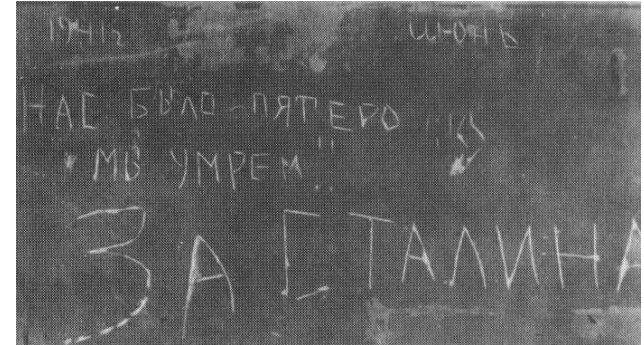 1941г июнь
НАС БЫЛО ПЯТЕРО
МЫ УМРЕМ!!
ЗА СТАЛИНА